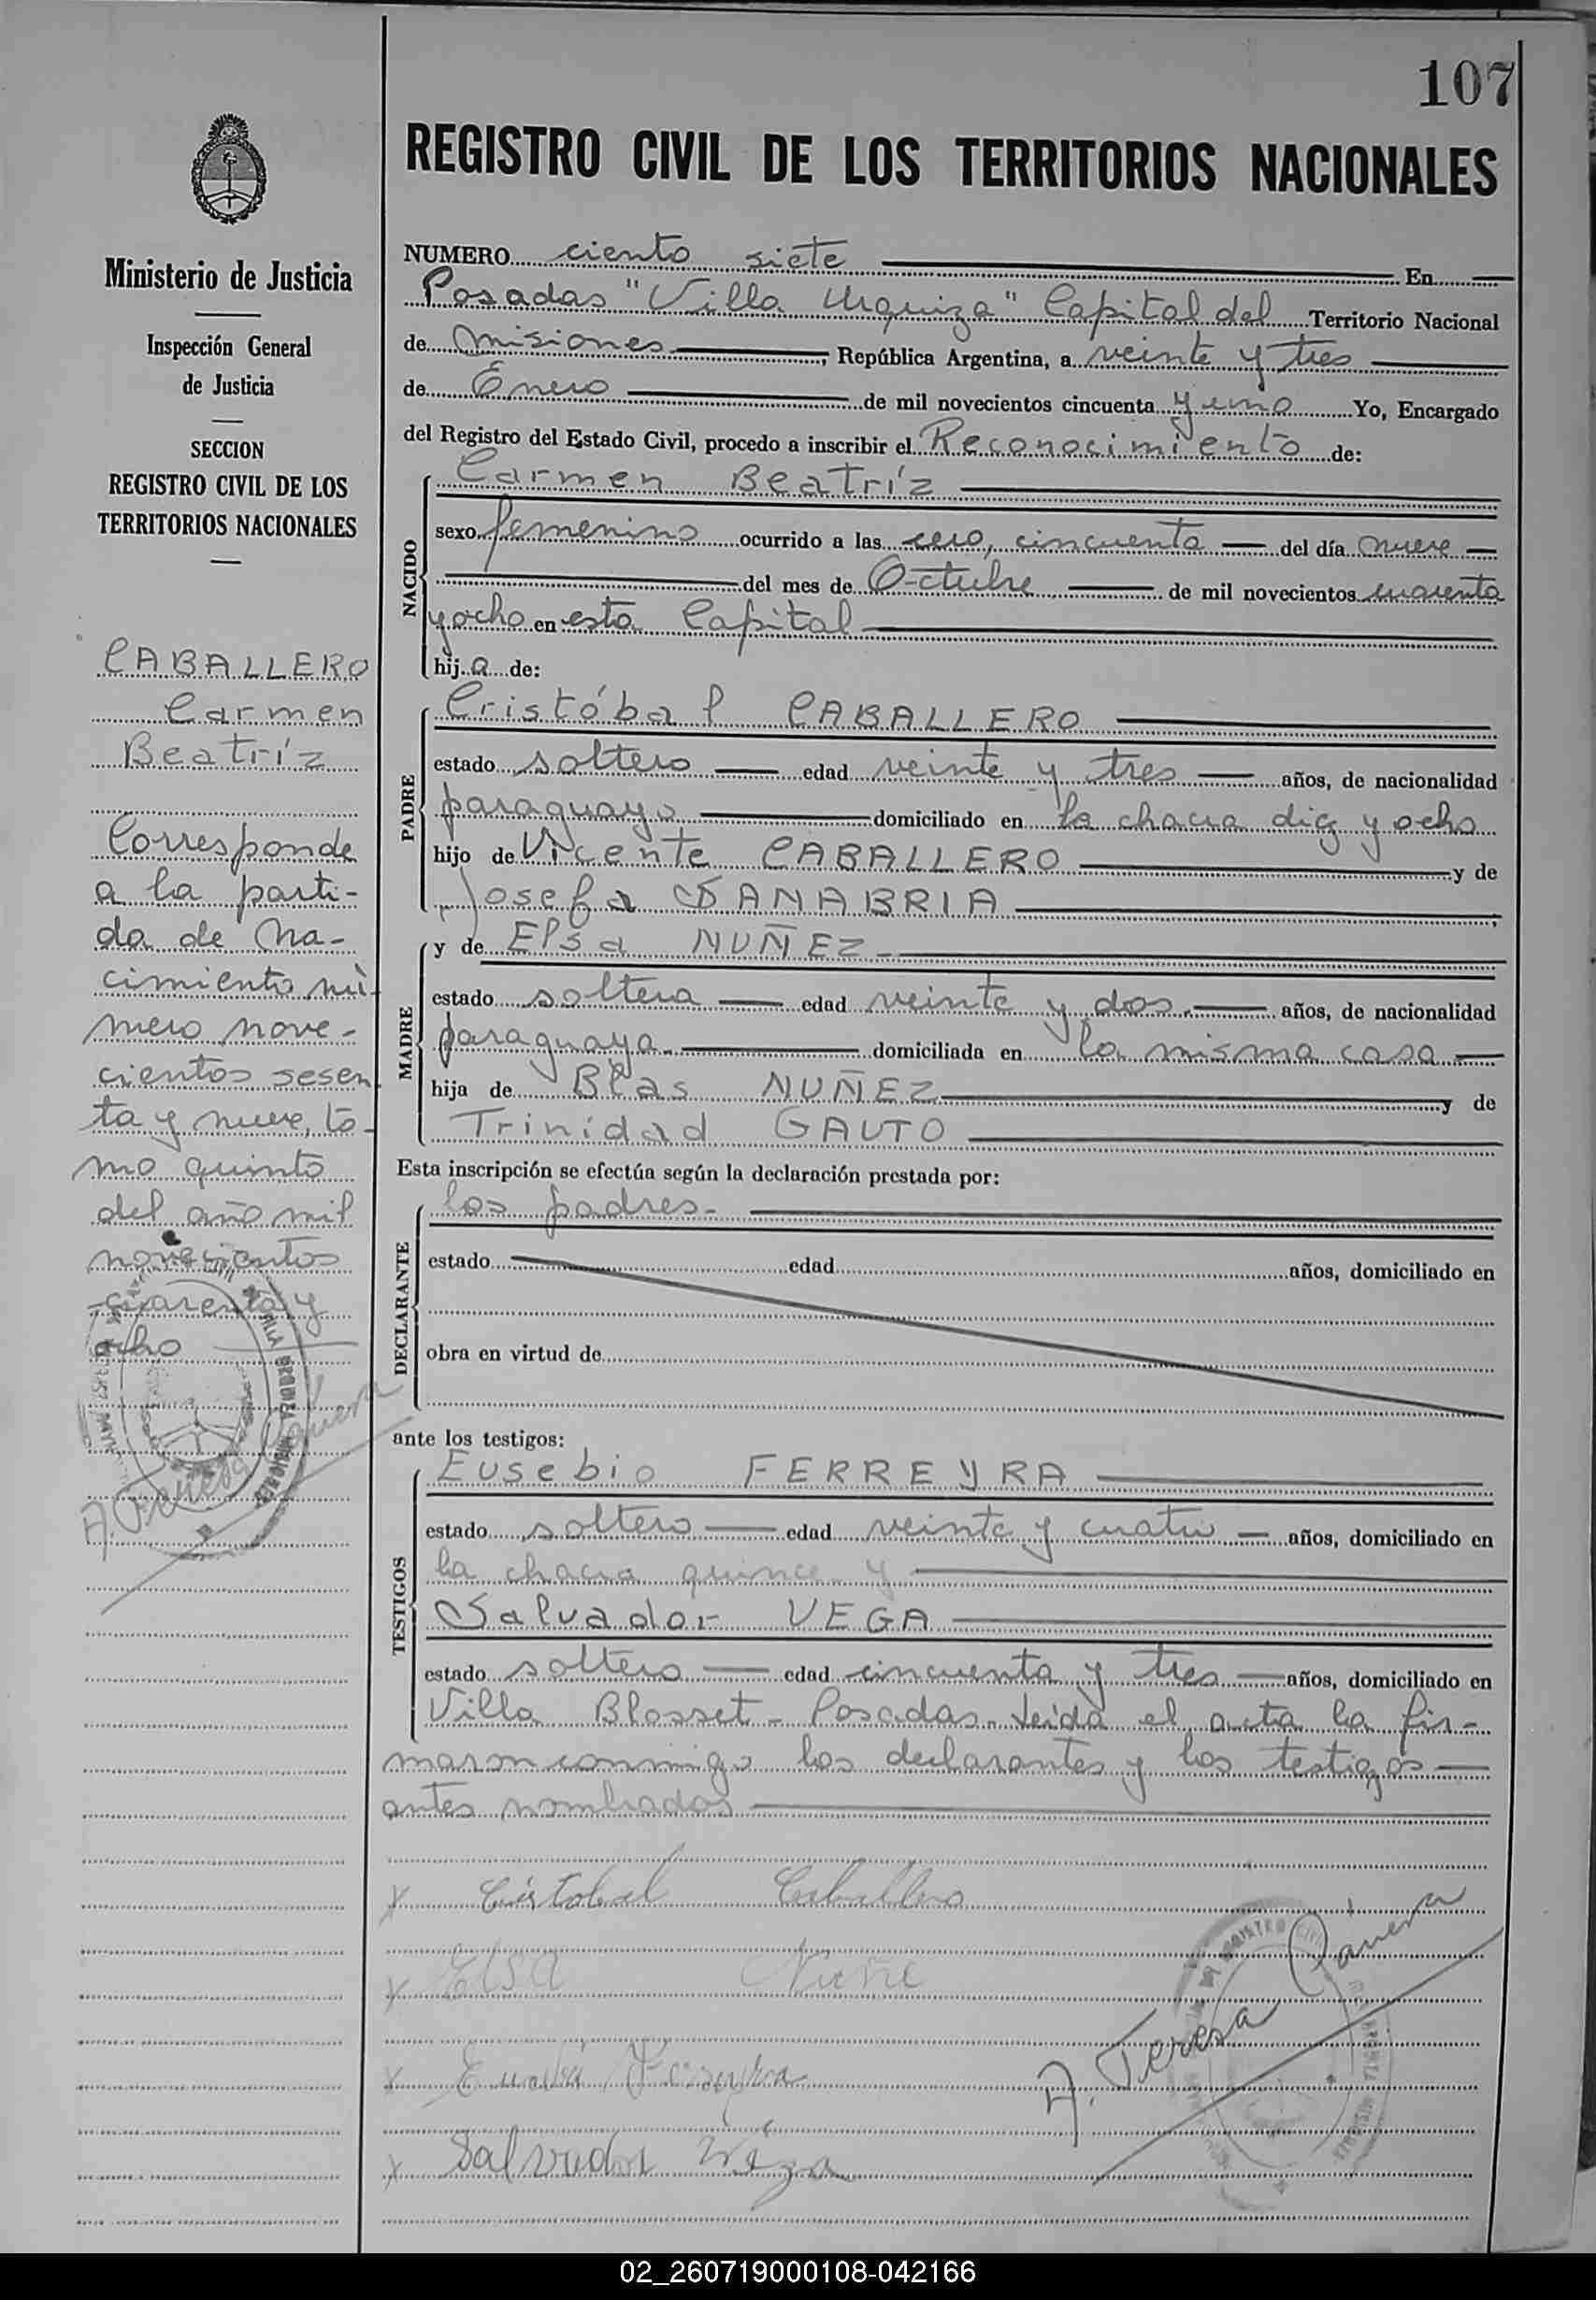 107
REGISTRO CIVIL DE LOS TERRITORIOS NACIONALES
Ministerio de Justicia
Inspección General
de Justicia
SECCION
REGISTRO CIVIL DE LOS
TERRITORIOS NACIONALES
CABALLERO
Carmen
Beatríz
Corresponde
a la parti-
da de Na-
cimiento nú-
mero nove-
cientos sesen
ta y nueve, to-
mo quinto
del año mil
novecientos
cuarenta y
ocho
NUMERO ciento siete En
Posadas "Villa Urquiza" Capital del Territorio Nacional
de Misiones, República Argentina, a veinte y tres
de Enero de mil novecientos cincuenta y uno Yo, Encargado
del Registro del Estado Civil, procedo a inscribir el Reconocimiento de:
NACIDO
Carmen Beatríz
sexo femenino ocurrido a las cero, cincuenta del día nueve
del mes de Octubre de mil novecientos cuarenta
y ocho en esta Capital
hija de:
PADRE
Cristóbal CABALLERO
estado soltero edad veinte y tres años, de nacionalidad
paraguayo domiciliado en la chacra diez y ocho
hijo de Vicente CABALLERO y de
Josefa SANABRIA;
MADRE
y de Elsa NUÑEZ
estado soltera edad veinte y dos años, de nacionalidad
paraguaya domiciliada en la misma casa
hija de Blas NUÑEZ y de
Trinidad GAUTO
Esta inscripción se efectúa según la declaración prestada por:
DECLARANTE
los padres.
estado edad años, domiciliado en
obra en virtud de
ante los testigos:
TESTIGOS
Eusebio FERREYRA
estado soltero edad veinte y cuatro años, domiciliado en
la chacra quince y
Salvador VEGA
estado soltero edad cincuenta y tres años, domiciliado en
Villa Blosset - Posadas. Leida el acta la fir-
maron conmigo los declarantes y los testigos
antes nombrados
x Cristobal Caballero
x Elsa Nuñe
x Ferreyra
x Salvador Vega
A. Teresa
02_260719000108-042166